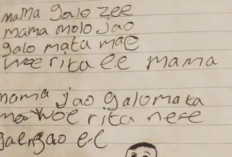 mama galo zee
mama molo jao
galo mata mae
woe rita ee mama
mama jao galomata
ma woe rita nese
gaengao ee